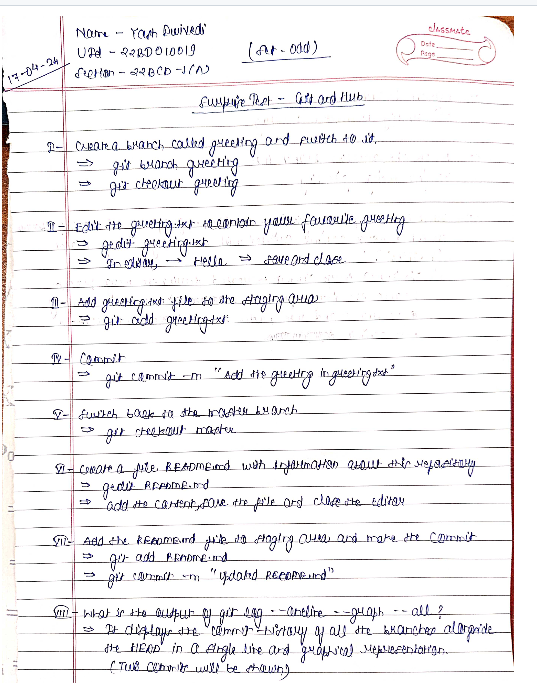 17-04-24
Name - Yash Dwivedi
UId - 22BDO10019
Section - 22BCD-1(A)
(Set - odd)
classmate
Date
Page
Surprise Test - Git and Hub
I - Create a branch called greeting and switch to it.
⇒ git branch greeting
⇒ git checkout greeting
II - Edit the greeting.txt to contain your favourite greeting
⇒ gedit greeting.txt
⇒ In editor, → Hello ⇒ save and close
III - Add greeting.txt file to the staging area
⇒ git add greeting.txt
IV - Commit
⇒ git commit -m "Add the greeting in greeting.txt"
V - Switch back to the master branch
⇒ git checkout master
VI - Create a file README.md with information about this repository
⇒ gedit README.md
⇒ add the content, save the file and close the Editor
VII - Add the README.md file to staging area and make the Commit
⇒ git add README.md
⇒ git commit -m "updated README.md"
VIII - What is the output of git log --oneline --graph --all ?
⇒ It displays the commit-history of all the branches alongside
the HEAD in a single line and graphical representation.
(Two commits will be shown)